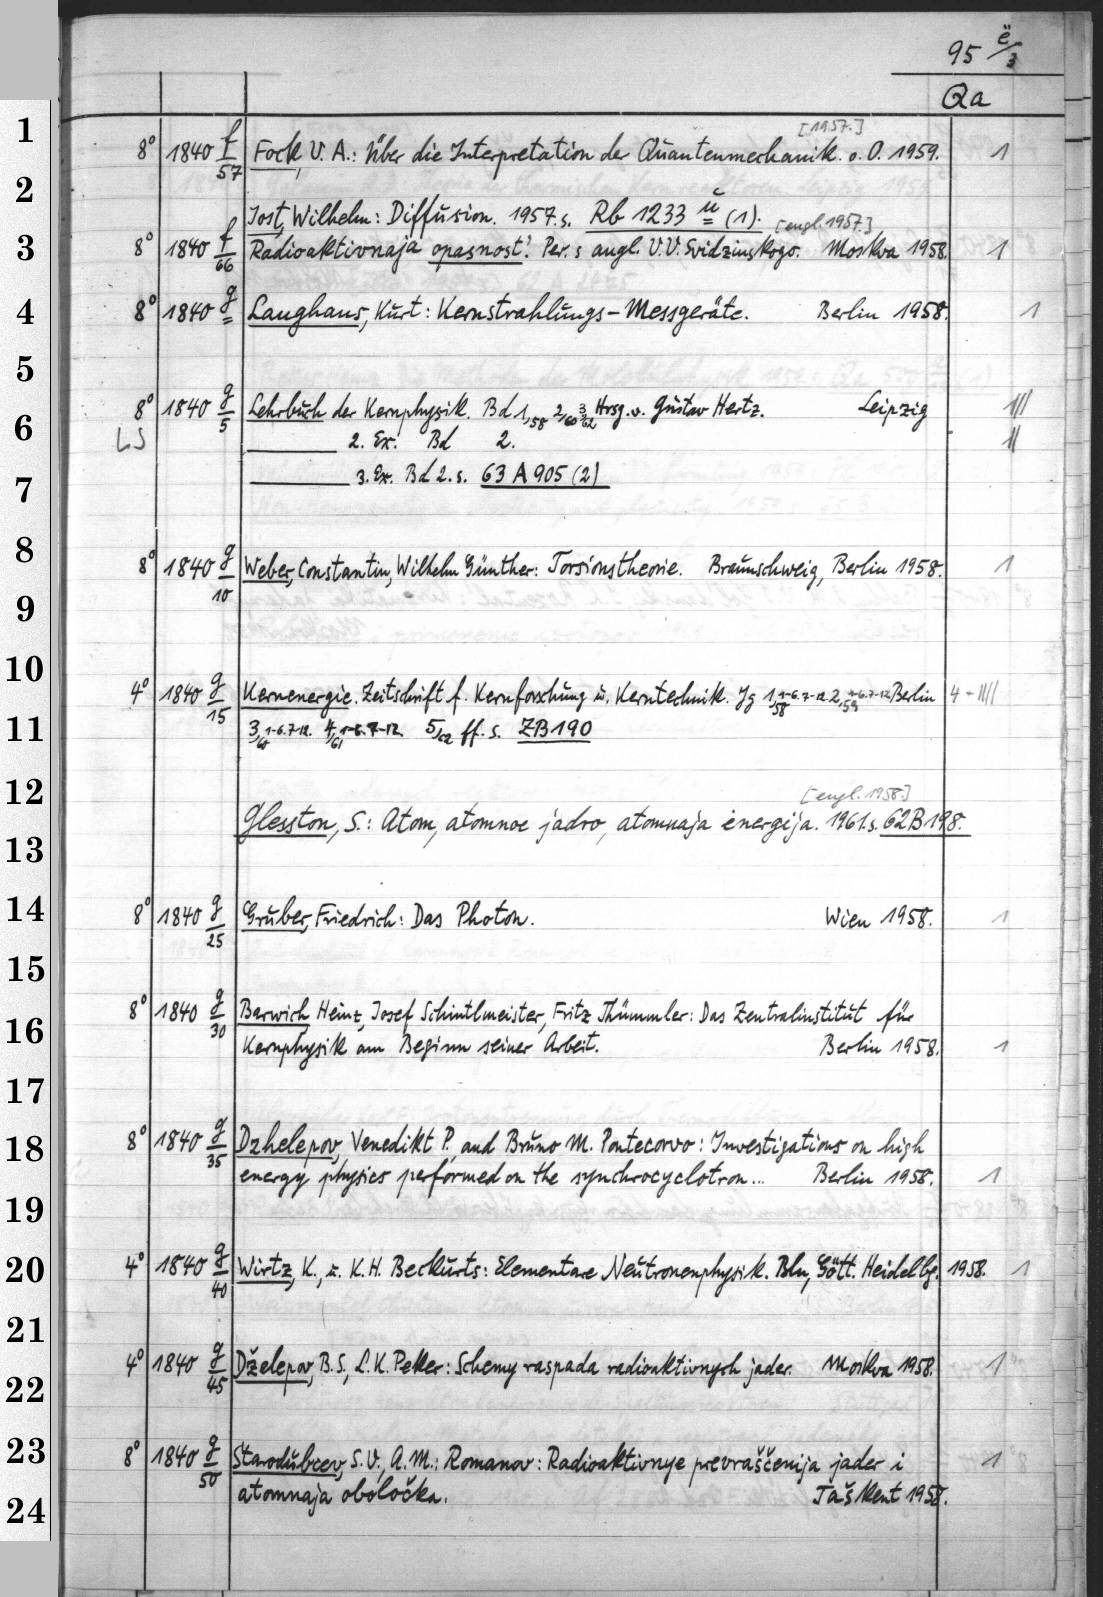 95 ë/3
Qa
[1957.]
1
8° 1840 f/57 Fock, V. A.: Über die Interpretation der Quantenmechanik. o. O. 1959. 1
2
Jost, Wilhelm: Diffusion. 1957. s. Rb 1233 ü (1).
[engl. 1957.]
3
8° 1840 f/66 Radioaktivnaja opasnost'. Per. s angl. V. V. Svidzinskogo. Moskva 1958. 1
4
8° 1840 g Langhans, Kurt: Kernstrahlungs-Messgeräte. Berlin 1958. 1
5
8° 1840 g/5 Lehrbuch der Kernphysik. Bd 1,58 2/60 3/62 Hrsg. v. Gustav Hertz. Leipzig III
6
LS 2. Ex. Bd 2. II
7
3. Ex. Bd 2. s. 63 A 905 (2)
8
8° 1840 g/10 Weber, Constantin, Wilhelm Günther: Torsionstheorie. Braunschweig, Berlin 1958. 1
9
10
4° 1840 g/15 Kernenergie. Zeitschrift f. Kernforschung u. Kerntechnik. Jg 1,1-6.7-12 58 2,1-6.7-12 59 Berlin 4 - IIII
11
3,1-6.7-12. 4,1-6.7-12. /61 5/62 ff. s. ZB 190
12
[engl. 1958.]
Glesston, S.: Atom, atomnoe jadro, atomnaja ėnergija. 1961. s. 62 B 198.
13
14
8° 1840 g/25 Gruber, Friedrich: Das Photon. Wien 1958. 1
15
8° 1840 g/30 Barwich Heinz, Josef Schintlmeister, Fritz Thümmler: Das Zentralinstitut für
16
Kernphysik am Beginn seiner Arbeit. Berlin 1958. 1
17
8° 1840 g/35 Dzhelepov, Venedikt P., and Bruno M. Pontecorvo: Investigations on high
18
energy physics performed on the synchrocyclotron... Berlin 1958. 1
19
20
4° 1840 g/40 Wirtz, K., u. K. H. Beckurts: Elementare Neutronenphysik. Bln, Gött. Heidelbg. 1958. 1
21
4° 1840 g/45 Dželepov, B. S., L. K. Peker: Schemy raspada radioaktivnych jader. Moskva 1958. 1
22
23
8° 1840 g/50 Starodubcev, S. V., A. M.: Romanov: Radioaktivnye prevraščenija jader i 1
24
atomnaja oboločka. Taškent 1958.